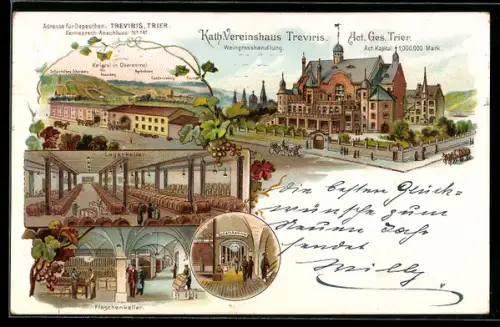 Adresse für Depeschen: TREVIRIS, TRIER.
Fernsprech-Anschluss: No
Kath. Vereinshaus Treviris. Act. Ges. Trier.
Weingrosshandlung. Act. Kapital 1,000,000 Mark.
Kelterei in Oberemmel
Lagerkeller
Flaschenkeller.
Die besten Glück-
wünsche zum
Neuen Jahr
sendet
Willy